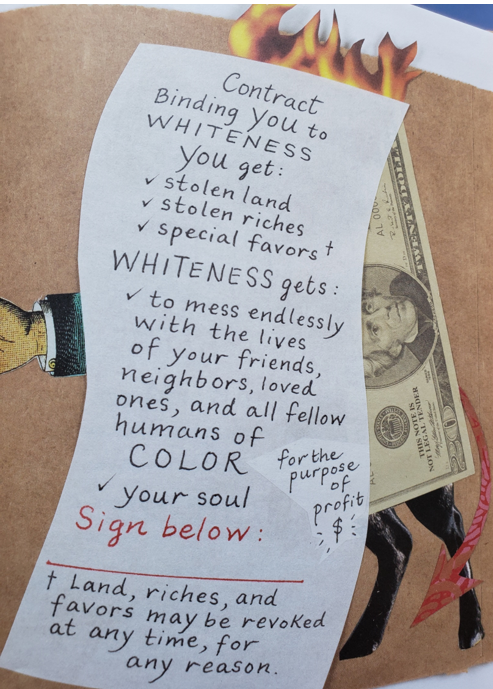 Contract
Binding you to
WHITENESS
You get:
✓ stolen land
✓ stolen riches
✓ special favors†
WHITENESS gets:
✓ to mess endlessly
with the lives
of your friends,
neighbors, loved
ones, and all fellow
humans of
COLOR
for the
purpose
of
profit
$
✓ your soul
Sign below:
† Land, riches, and
favors may be revoked
at any time, for
any reason.
THIS NOTE IS
NOT LEGAL TENDER